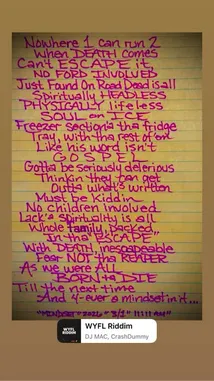 Nowhere 1 can run 2
When DEATH comes
Can't ESCAPE it,
NO FORD INVOLVED
Just Found On Road Dead is all
Spiritually HEADLESS
PHYSICALLY lifeless
SOUL on ICE
Freezer section'a tha fridge
Tray, with tha rest of 'em
Like his word isn't
GOSPEL
Gotta be seriously delirious
Thinkin' they can get
Outta what's written
Must be kiddin'
No children involved
Lack'a spirituality is all
Whole family, packed
In tha "ESCAPE"
With DEATH, inescapeable
Fear NOT tha REAPER
As we were All
BORN to DIE
Till the next time
And 4-ever a mindset in it...
"MINDSET" 2026 " 3/2" 11:11 AM"
WYFL Riddim
WYFL RIDDIM
DJ MAC, CrashDummy